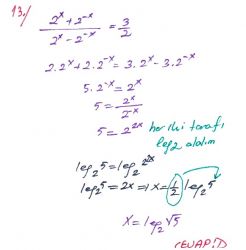 13./
(2^x + 2^-x) / (2^x - 2^-x) = 3/2
2.2^x + 2.2^-x = 3.2^x - 3.2^-x
5.2^-x = 2^x
5 = 2^x / 2^-x
5 = 2^2x her iki tarafı
log2 alalım
log₂5 = log₂2^2x
log₂5 = 2x ⇒ x = 1/2 log₂5
x = log₂√5
CEVAP: D